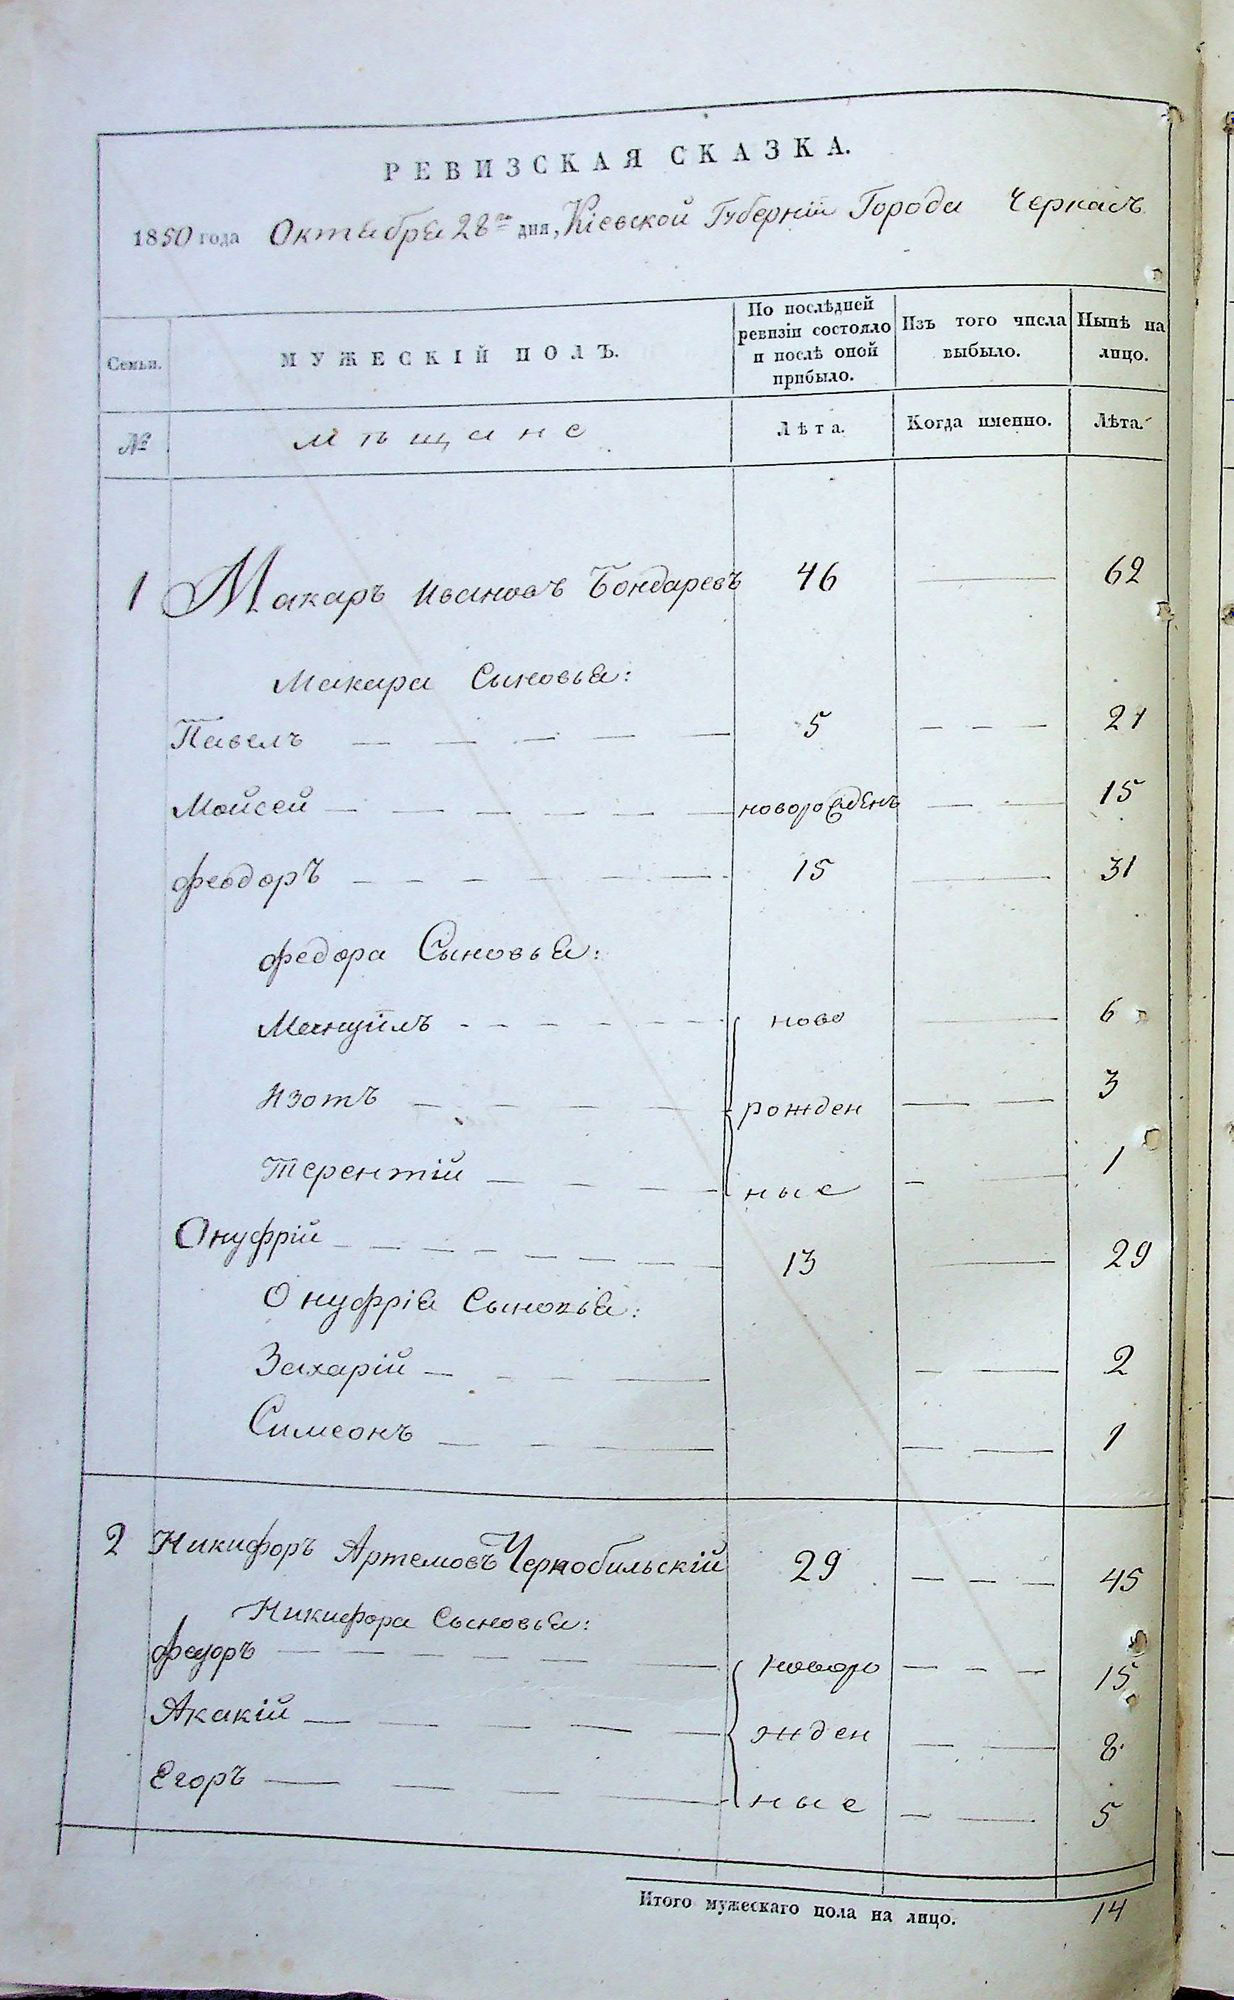 РЕВИЗСКАЯ СКАЗКА.
1850 года Октября 28го дня, Кіевской Губерніи Города Черкасъ
Семьи. МУЖЕСКІЙ ПОЛЪ. По послѣдней ревизіи состояло и послѣ оной прибыло. Изъ того числа выбыло. Нынѣ на лицо.
№ мѣщане Лѣта. Когда именно. Лѣта.
1 Макаръ Ивановъ Бондаревъ 46 62
Макара Сыновья:
Павелъ 5 21
Мойсей новорожденъ 15
Феодоръ 15 31
Федора Сыновья:
Мануйлъ ново 6
Изотъ рожден 3
Терентій ные 1
Онуфрій 13 29
Онуфрія Сыновья:
Захарій 2
Симеонъ 1
2 Никифоръ Артемовъ Чернобильскій 29 45
Никифора Сыновья:
Федоръ новоро 15
Акакій жден 8
Егоръ ные 5
Итого мужескаго пола на лицо. 14